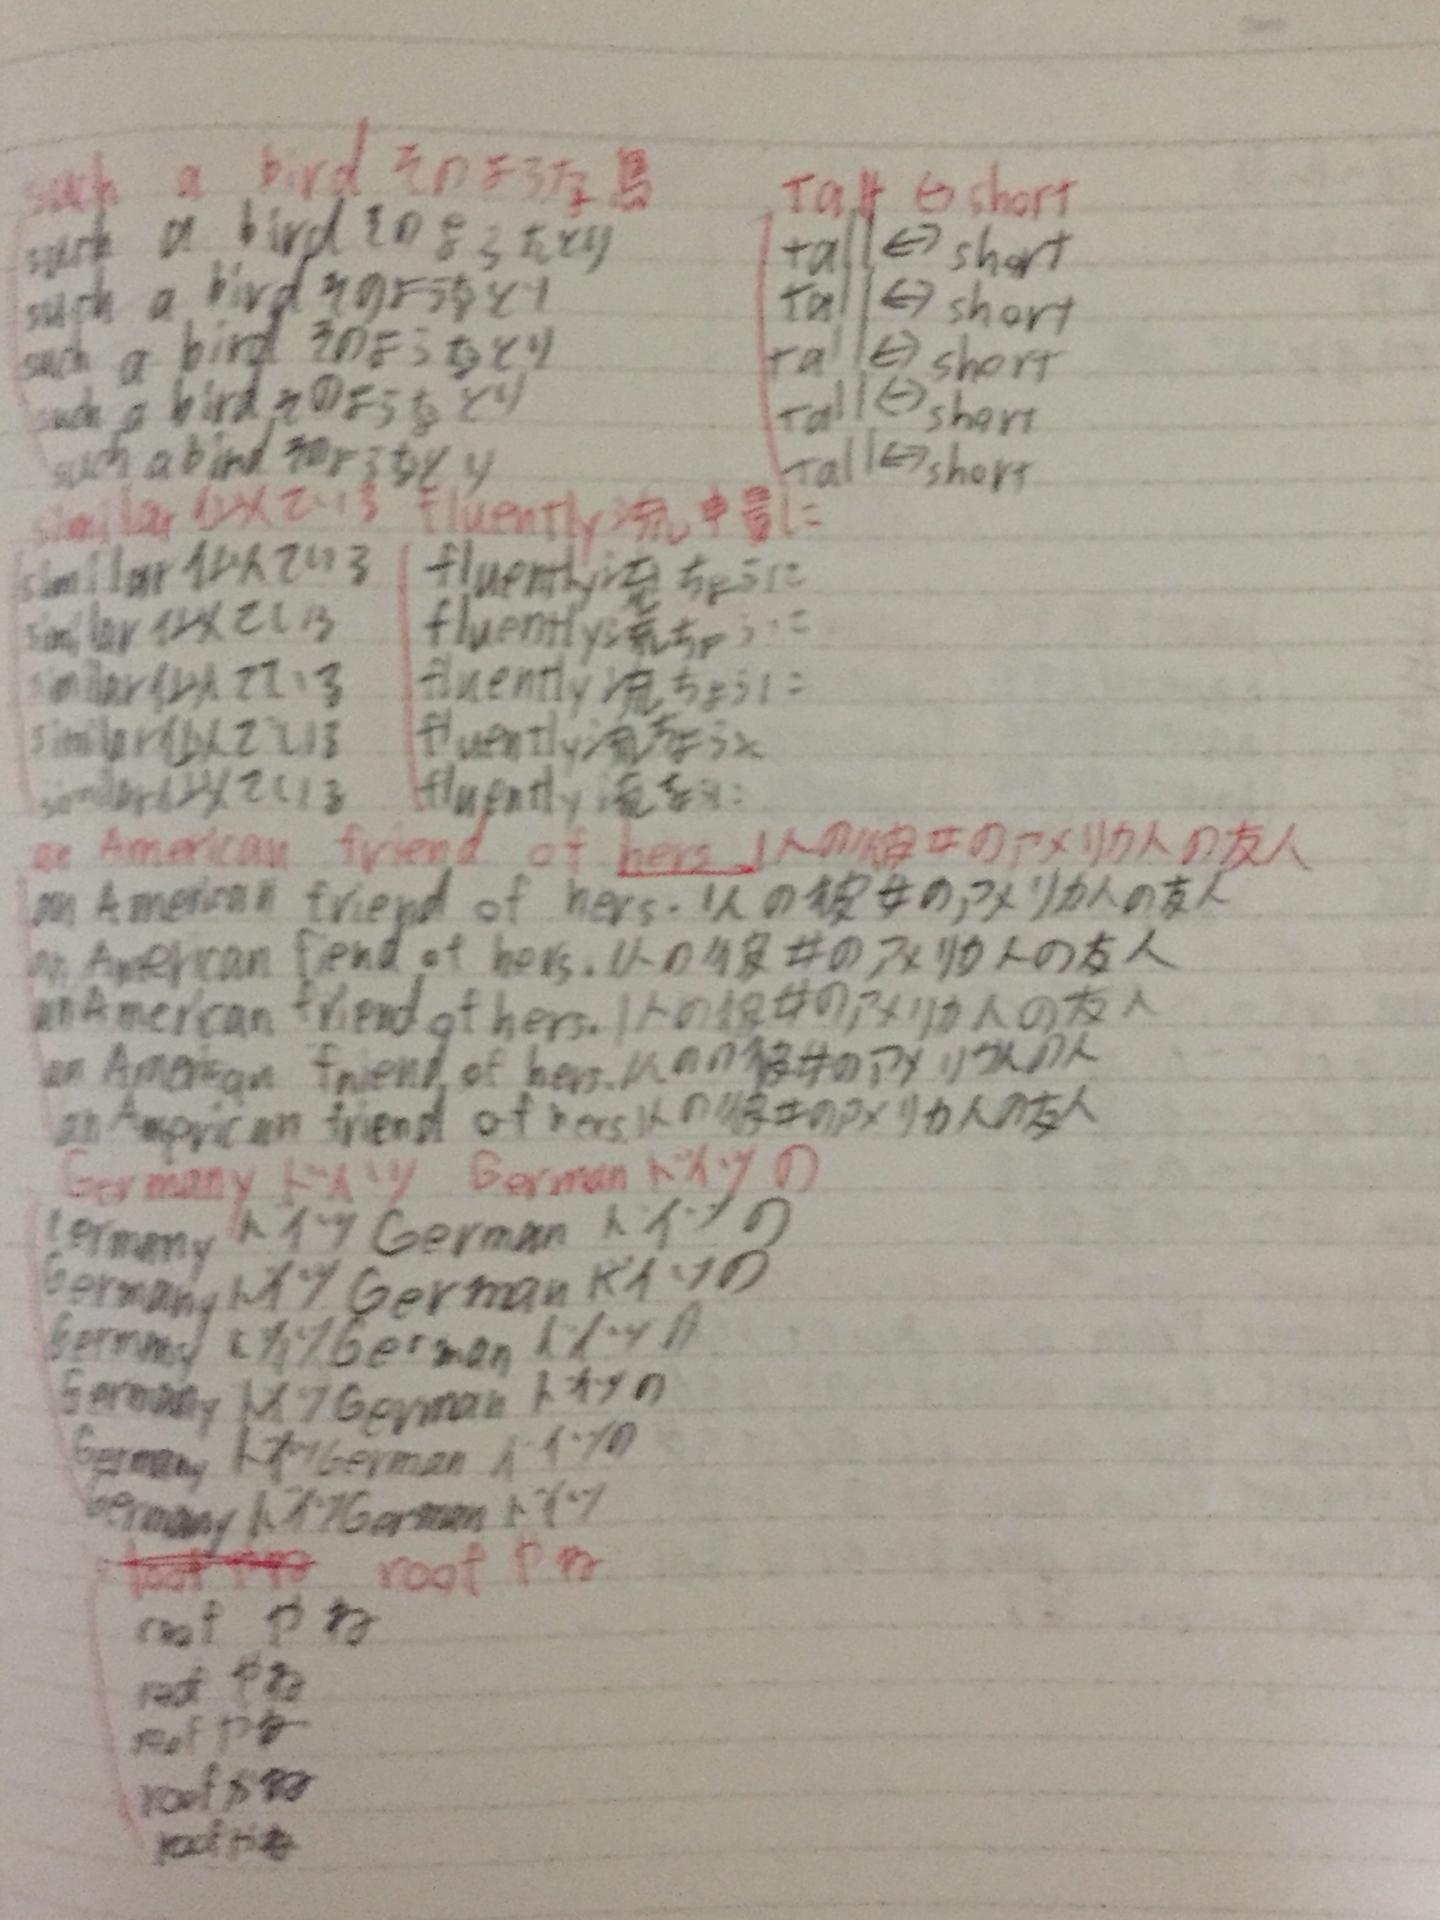 such a bird そのような鳥 Tall ⇔ short
such a bird そのようなとり tall ⇔ short
such a bird そのようなとり Tall ⇔ short
such a bird そのようなとり Tall ⇔ short
such a bird そのようなとり Tall ⇔ short
such a bird そのようなとり Tall ⇔ short
similar 似ている fluently 流
similar 似ている fluently 流ちょうに
similar 似ている fluently 流ちょうに
similar 似ている fluently 流ちょうに
similar 似ている fluently 流ちょうに
similar 似ている fluently 流
an American friend of hers 1人の彼女のアメリカ人の友人
an American friend of hers. 1人の彼女のアメリカ人の友人
an American fiend of hers. 1人の彼女のアメリカ人の友人
an American friend of hers. 1人の彼女のアメリカ人の友人
an American friend of hers. 1人のの彼女のアメリカ人の人
an American friend of hers. 1人の彼女のアメリカ人の友人
Germany ドイツ German ドイツの
Germany ドイツ German ドイツの
Germany ドイツ German ドイツの
Germany ドイツ German ドイツの
Germany ドイツ German ドイツの
Germany ドイツ German ドイツの
Germany ドイツ German ドイツ
roof やね
roof やね
roof やね
roof やね
roof やね
roof やね